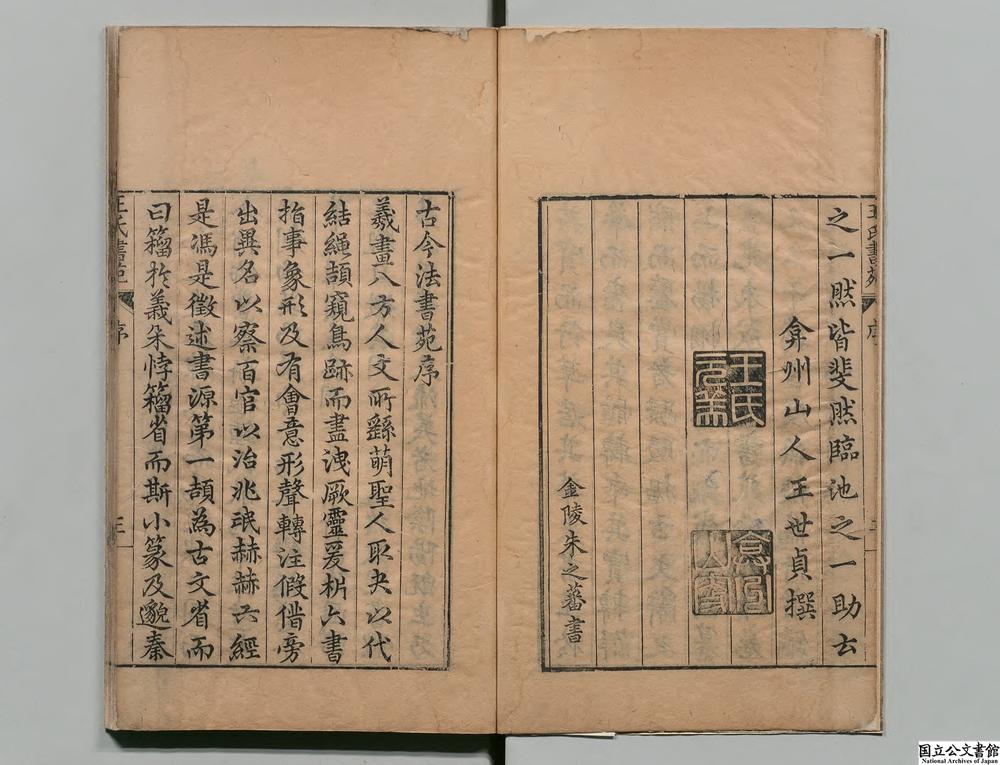 王氏書苑 序 三
之一然皆斐然臨池之一助云
弇州山人王世貞撰
王氏元美
金陵朱之蕃書
古今法書苑序
羲畫八方人文所繇萌聖人取夬以代
結繩頡窺鳥跡而盡洩厥靈爰枿六書
指事象形及有會意形聲轉注假借旁
出異名以察百官以治兆氓赫赫六經
是馮是徵述書源第一頡為古文省而
曰籀於羲朱悖籀省而斯小篆及邈秦
王氏書苑 序
国立公文書館
National Archives of Japan